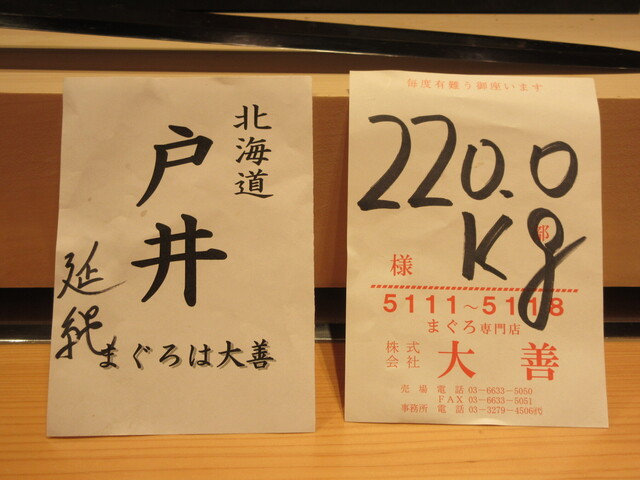 北海道
戸井
延縄
まぐろは大善
毎度有難う御座います
220.0
kg
様
5111～5118
まぐろ専門店
株式会社 大善
売場 電話 03-6633-5050
FAX 03-6633-5051
事務所 電話 03-3279-4506代